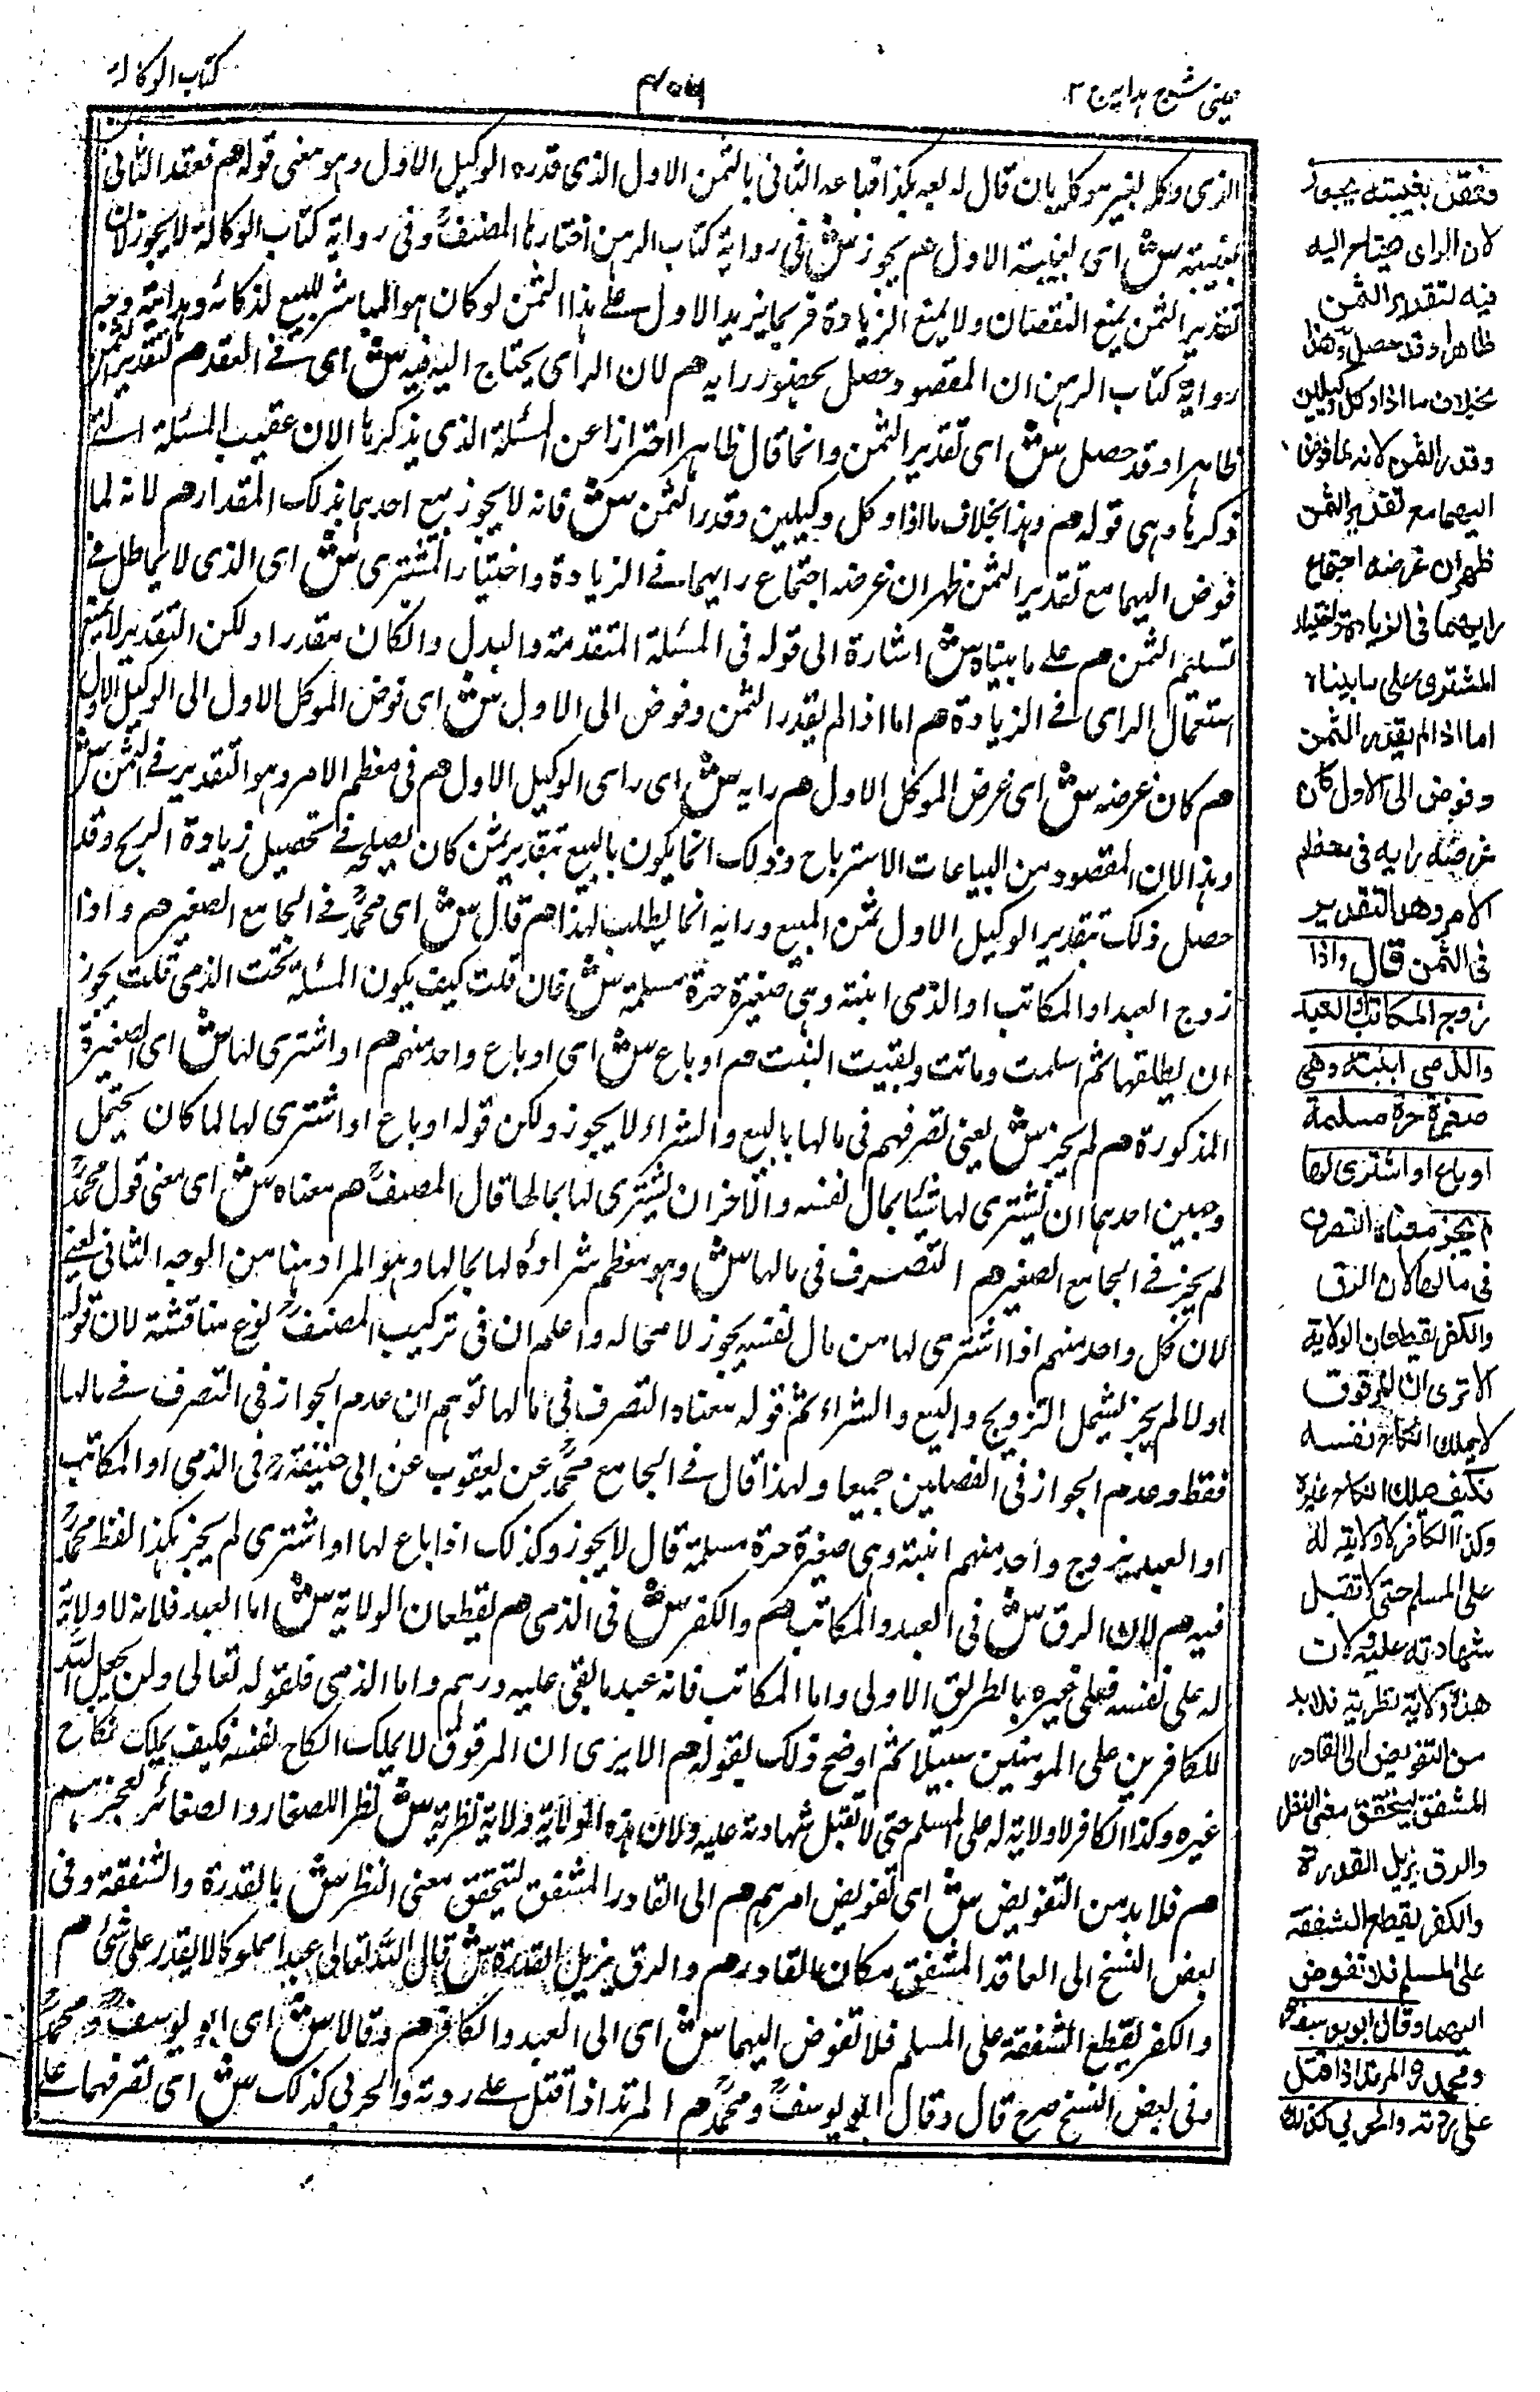 عینی شرح ہدایہ ج ۳
کتاب الوکالۃ
الذی وکلہ لغیر موکلہ بان قال لہ بعہ بکذا فباعہ الثانی بالثمن الاول الذی قدرہ الوکیل الاول وہو معنی قولہ ھم فعقد الثانی
بغیبتہ ش ای بغیبۃ الاول ھم یجوز ش فی روایۃ کتاب الرہن اختارہا المصنف وفی روایۃ کتاب الوکالۃ لا یجوز لان
تقدیر الثمن یمنع النقصان ولا یمنع الزیادۃ فربما یزید الاول علی ہذا الثمن لو کان ہو المباشر للبیع لذکائہ وہدایتہ وجہ
روایۃ کتاب الرہن ان المقصود حصل بحضور رایہ ھم لان الرای یحتاج الیہ فیہ ش ای فی العقد ھم لتقدیر الثمن
ظاہرا وقد حصل ش ای تقدیر الثمن وانما قال ظاہرا احترازا عن المسئلۃ الذی یذکرہا الان عقیب المسئلۃ التی
ذکرہا وہی قولہ ھم وہذا بخلاف ما اذا وکل وکیلین وقدر الثمن ش فانہ لا یجوز بیع احدہما بذلک المقدار ھم لانہ لما
فوض الیہما مع تقدیر الثمن ظہر ان غرضہ اجتماع رایہما فی الزیادۃ واختیار المشتری ش ای الذی لا یماطل فی
تسلیم الثمن ھم علی ما بیناہ ش اشارۃ الی قولہ فی المسئلۃ المتقدمۃ والبدل وان کان مقدرا ولکن التقدیر لا یمنع
استعمال الرای فی الزیادۃ ھم اما اذا لم یقدر الثمن وفوض الی الاول ش ای فوض الموکل الاول الی الوکیل الاول
ھم کان غرضہ ش ای غرض الموکل الاول ھم رایہ ش ای رای الوکیل الاول ھم فی معظم الامر وہو التقدیر فی الثمن ش
وہذا لان المقصود من البیاعات الاسترباح وذلک انما یکون بالبیع بتقدیر ثمن کان یصلح فی تحصیل زیادۃ الربح وقد
حصل ذلک بتقدیر الوکیل الاول ثمن المبیع ورایہ انما یطلب لہذا ھم قال ش ای محمد فی الجامع الصغیر ھم واذا
زوج العبد او المکاتب او الذمی ابنتہ وہی صغیرۃ حرۃ مسلمۃ ش فان قلت کیف یکون المسلمۃ تحت الذمی قلت یجوز
ان یطلقہا ثم اسلمت وماتت وبقیت البنت ھم او باع ش ای او باع واحد منہم ھم او اشتری لہا ش ای الصغیرۃ
المذکورۃ ھم لم یجز ش یعنی تصرفہم فی مالہا بالبیع والشراء لا یجوز ولکن قولہ او باع او اشتری لہا لما کان یحتمل
وجہین احدہما ان یشتری لہا شیئا بمال نفسہ والاخر ان یشتری لہا بمالہا قال المصنف ھم معناہ ش ای معنی قول محمد
لم یجز فی الجامع الصغیر ھم التصرف فی مالہا ش وہو معظم شراؤہ لہا بمالہا وہو المراد ہنا من الوجہ الثانی یعنی
لان کل واحد منہم اذا اشتری لہا من مال نفسہ یجوز لا محالہ واعلم ان فی ترکیب المصنف نوع مناقشۃ لان قولہ
اولا لم یجز یشمل التزویج والبیع والشراء ثم قولہ معناہ التصرف فی مالہا توہم ان عدم الجواز فی التصرف فی مالہا
فقط وعدم الجواز فی الفصلین جمیعا ولہذا قال فی الجامع محمد عن یعقوب عن ابی حنیفۃ فی الذمی او المکاتب
او العبد یزوج واحد منہم ابنتہ وہی صغیرۃ حرۃ مسلمۃ قال لا یجوز وکذلک اذا باع لہا او اشتری لم یجز ہکذا لفظ محمد
فیہ ھم لان الرق ش فی العبد والمکاتب ھم والکفر ش فی الذمی ھم یقطعان الولایۃ ش اما العبد فلانہ لا ولایۃ
لہ علی نفسہ فعلی غیرہ بالطریق الاولی واما المکاتب فانہ عبد ما بقی علیہ درہم واما الذمی فلقولہ تعالی ولن یجعل اللہ
للکافرین علی المومنین سبیلا ثم اوضح ذلک بقولہ ھم الا یری ان المرقوق لا یملک انکاح نفسہ فکیف یملک انکاح
غیرہ وکذا الکافر لا ولایۃ لہ علی المسلم حتی لا تقبل شہادتہ علیہ ولان ہذہ الولایۃ ولایۃ نظریۃ ش نظرا للصغار والصغائر لعجزہم
ھم فلا بد من التفویض ش ای تفویض امرہم ھم الی القادر المشفق لیتحقق معنی النظر ش بالقدرۃ والشفقۃ وفی
بعض النسخ الی العاقد المشفق مکان القادر ھم والرق یزیل القدرۃ ش قال اللہ تعالی عبدا مملوکا لا یقدر علی شئ ھم
والکفر یقطع الشفقۃ علی المسلم فلا تفوض الیہما ش ای الی العبد والکافر ھم وقالا ش ای ابو یوسف ومحمد
وفی بعض النسخ صرح قال وقال ابو یوسف ومحمد ھم المرتد اذا قتل علی ردتہ والحربی کذلک ش ای تصرفہما علی
فعقد بغیبتہ یجوز
لان الرای یحتاج الیہ
فیہ لتقدیر الثمن
ظاهرا وقد حصل وهذا
بخلاف ما اذا وکل وکیلین
وقدر الثمن لانہ لما فوض
الیهما مع تقدیر الثمن
ظهر ان غرضہ اجتماع
رایهما فی الزیادة واختیار
المشتری علی ما بیناه
اما اذا لم یقدر الثمن
وفوض الی الاول کان
غرضہ رایہ فی معظم
الامر وهو التقدیر
فی الثمن قال واذا
زوج المکاتب او العبد
والذمی ابنتہ وهی
صغیرة حرة مسلمة
او باع او اشتری لها
لم یجز معناه التصرف
فی مالها لان الرق
والکفر یقطعان الولایة
الا تری ان المرقوق
لا یملک انکاح نفسہ
فکیف یملک انکاح غیره
وکذا الکافر لا ولایة لہ
علی المسلم حتی لا تقبل
شهادتہ علیہ ولان
هذه ولایة نظریة فلا بد
من التفویض الی القادر
المشفق لیتحقق معنی النظر
والرق یزیل القدرة
والکفر یقطع الشفقة
علی المسلم فلا تفوض
الیهما وقال ابو یوسف
ومحمد المرتد اذا قتل
علی ردتہ والحربی کذلک